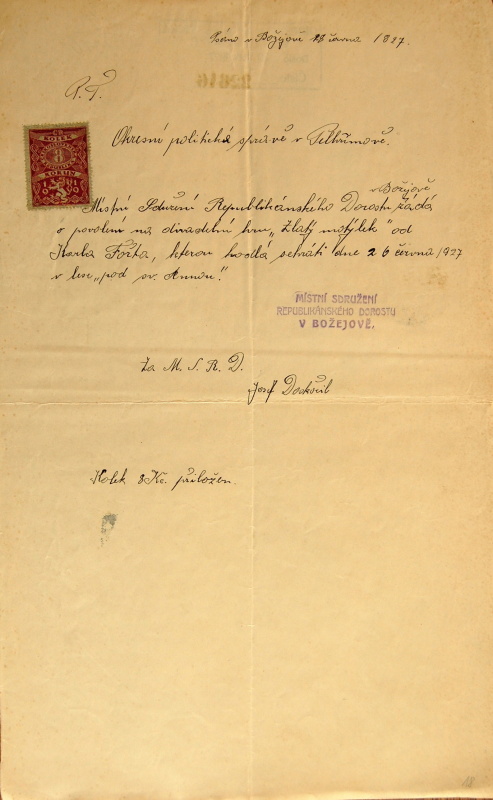 Psáno v Božejově 18 června 1927.
22616
P. T.
KOLEK
8
KORUN
1919
Okresní politické správě v Pelhřimově.
v Božejově
Místní Sdružení Republikánského Dorostu žádá
o povolení na divadelní hru „Zlatý motýlek" od
Karla Fořta, kterou hodlá sehráti dne 26 června 1927
v lese „pod sv. Annou".
MÍSTNÍ SDRUŽENÍ
REPUBLIKÁNSKÉHO DOROSTU
V BOŽEJOVĚ.
Za M. S. R. D.
Josef Doskočil
Kolek 8 Kč. přiložen.
18